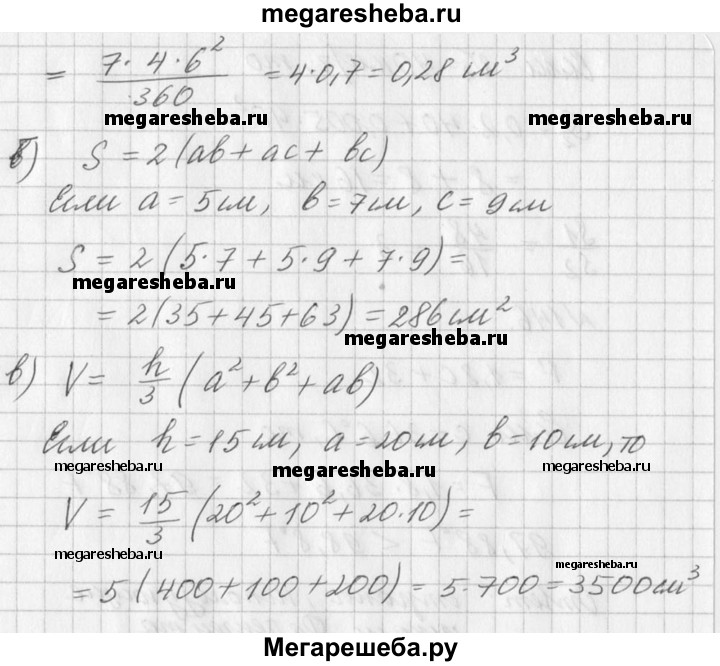 megaresheba.ru
= 7·4·6² / 360 = 4·0,7 = 0,28 см³
megaresheba.ru megaresheba.ru
б) S = 2(ab + ac + bc)
Если a = 5см, b = 7см, c = 9см
S = 2(5·7 + 5·9 + 7·9) =
megaresheba.ru
= 2(35+45+63) = 286 см²
megaresheba.ru
в) V = h/3 (a² + b² + ab)
Если h = 15см, a = 20см, b = 10см, то
megaresheba.ru megaresheba.ru megaresheba.ru
V = 15/3 (20² + 10² + 20·10) =
megaresheba.ru megaresheba.ru
= 5(400+100+200) = 5·700 = 3500см³
Мегарешеба.ру